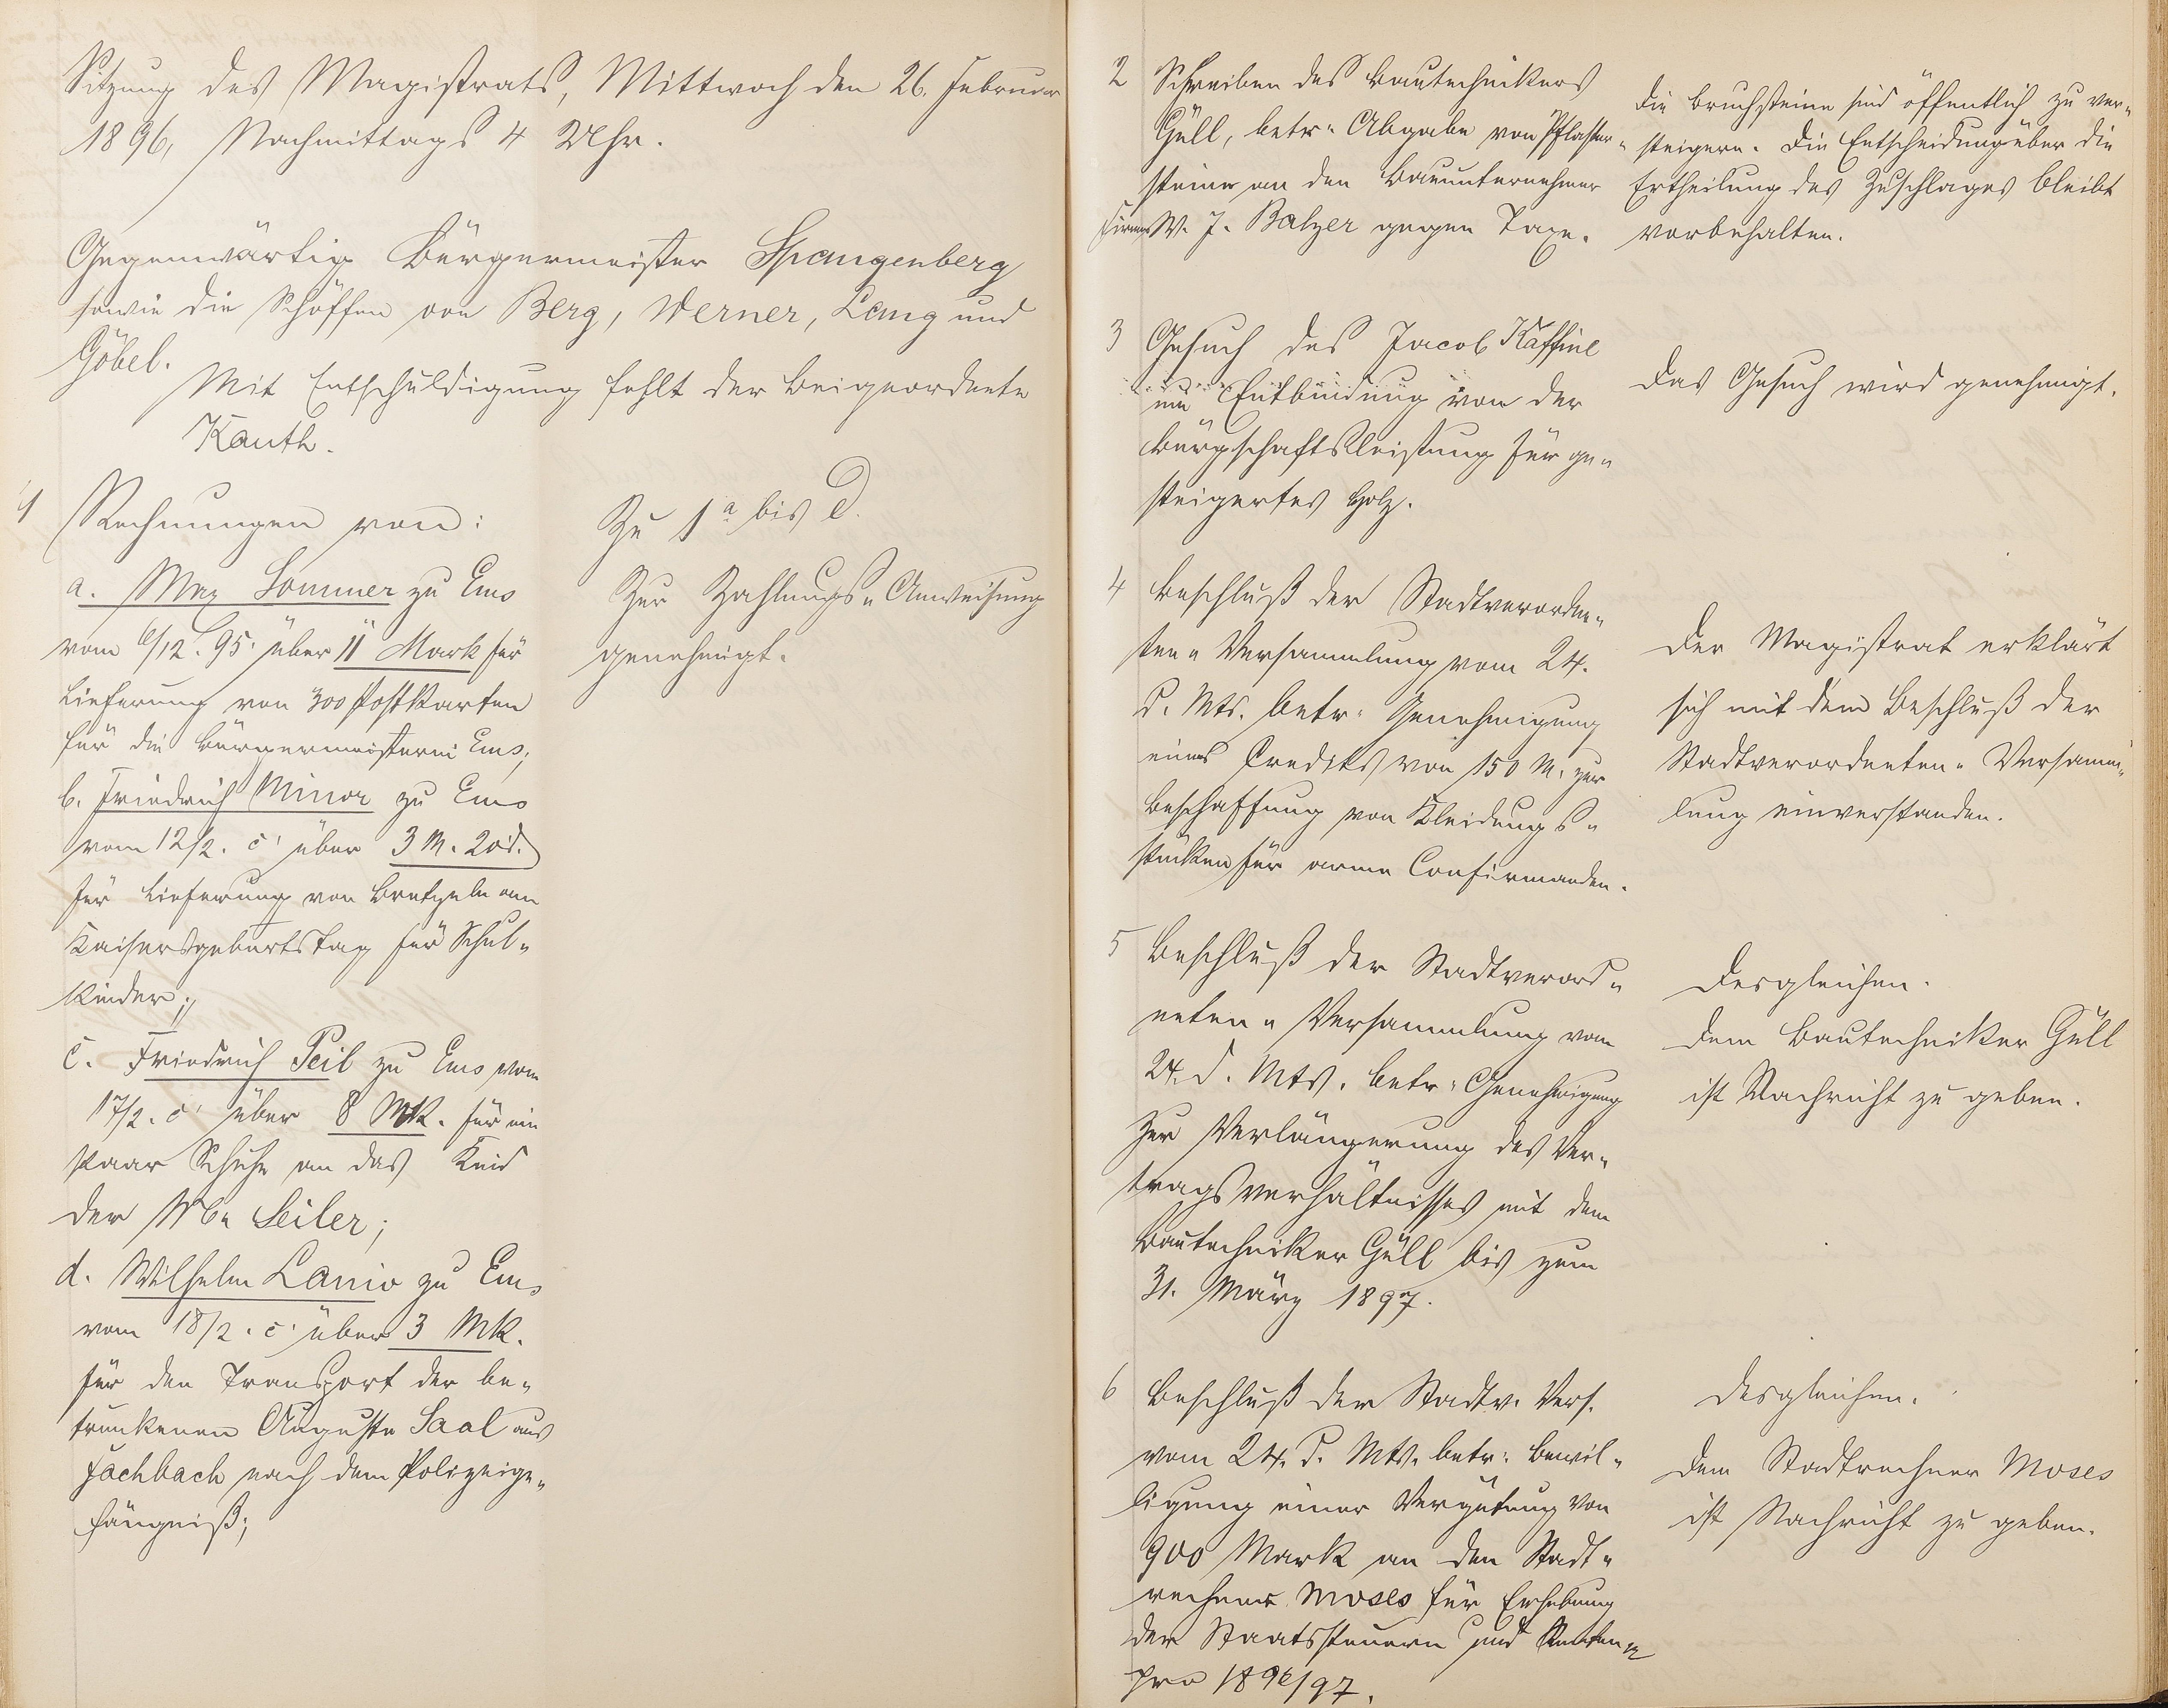 Sitzung des Magistrats, Mittwoch den 26. Februar
1896, Nachmittags 4 Uhr.
Gegenwärtig Bürgermeister Spangenberg
sowie die Schöffen von Berg, Werner, Lang und
Göbel.
Mit Entschuldigung fehlt der Beigeordnete
Kauth.
1 Rechnungen von:
a. Max Sommer zu Ems
vom 6/12. 95. über 11 Mark für
Lieferung von 300 Postkarten
für die Bürgermeisterei Ems;
b. Friedrich Minor zu Ems
vom 12/2. c. über 3 M. 20 d.
für Lieferung von Bretzeln am
Kaisersgeburtstag für Schul-
kinder;
c. Friedrich Peil zu Ems vom
17/2. c. über 8 Mk. für ein
Paar Schuhe an das Kind
der Wb. Seiler;
d. Wilhelm Lanio zu Ems
vom 18/2. c. über 3 Mk.
für den Transport der be-
trunkenen Auguste Saal aus
Fachbach nach dem Polizeige-
fängniß;
Zu 1 a bis d.
Zur Zahlungs-Anweisung
genehmigt.
2 Schreiben des Bautechnikers
Güll, betr. Abgabe von Pflaster-
steine an den Bauunternehmer
Firma W. J. Balzer gegen Taxe.
Die Bruchsteine sind öffentlich zu ver-
steigern. Die Entscheidung über die
Ertheilung des Zuschlages bleibt
vorbehalten.
3 Gesuch des Jacob Kaffine
um Entbindung von der
Bürgschaftsleistung für ge-
steigertes Holz.
Das Gesuch wird genehmigt.
4 Beschluß der Stadtverordne-
ten-Versammlung vom 24.
d. Mts. betr. Genehmigung
eines Credits von 150 M. zur
Beschaffung von Kleidungs-
stücken für arme Confirmanden.
Der Magistrat erklärt
sich mit dem Beschluß der
Stadtverordneten-Versamm-
lung einverstanden.
5 Beschluß der Stadtverord-
neten-Versammlung vom
24. d. Mts. betr. Genehmigung
zur Verlängerung des Ver-
tragsverhältnisses mit dem
Bautechniker Güll bis zum
31. März 1897.
Desgleichen.
Dem Bautechniker Güll
ist Nachricht zu geben.
6 Beschluß der Stadtv. Vers.
vom 24. d. Mts. betr. Bewil-
ligung einer Vergütung von
900 Mark an den Stadt-
rechner Moses für Erhebung
der Staatssteuern und Renten
pro 1896/97.
Desgleichen.
Dem Stadtrechner Moses
ist Nachricht zu geben.